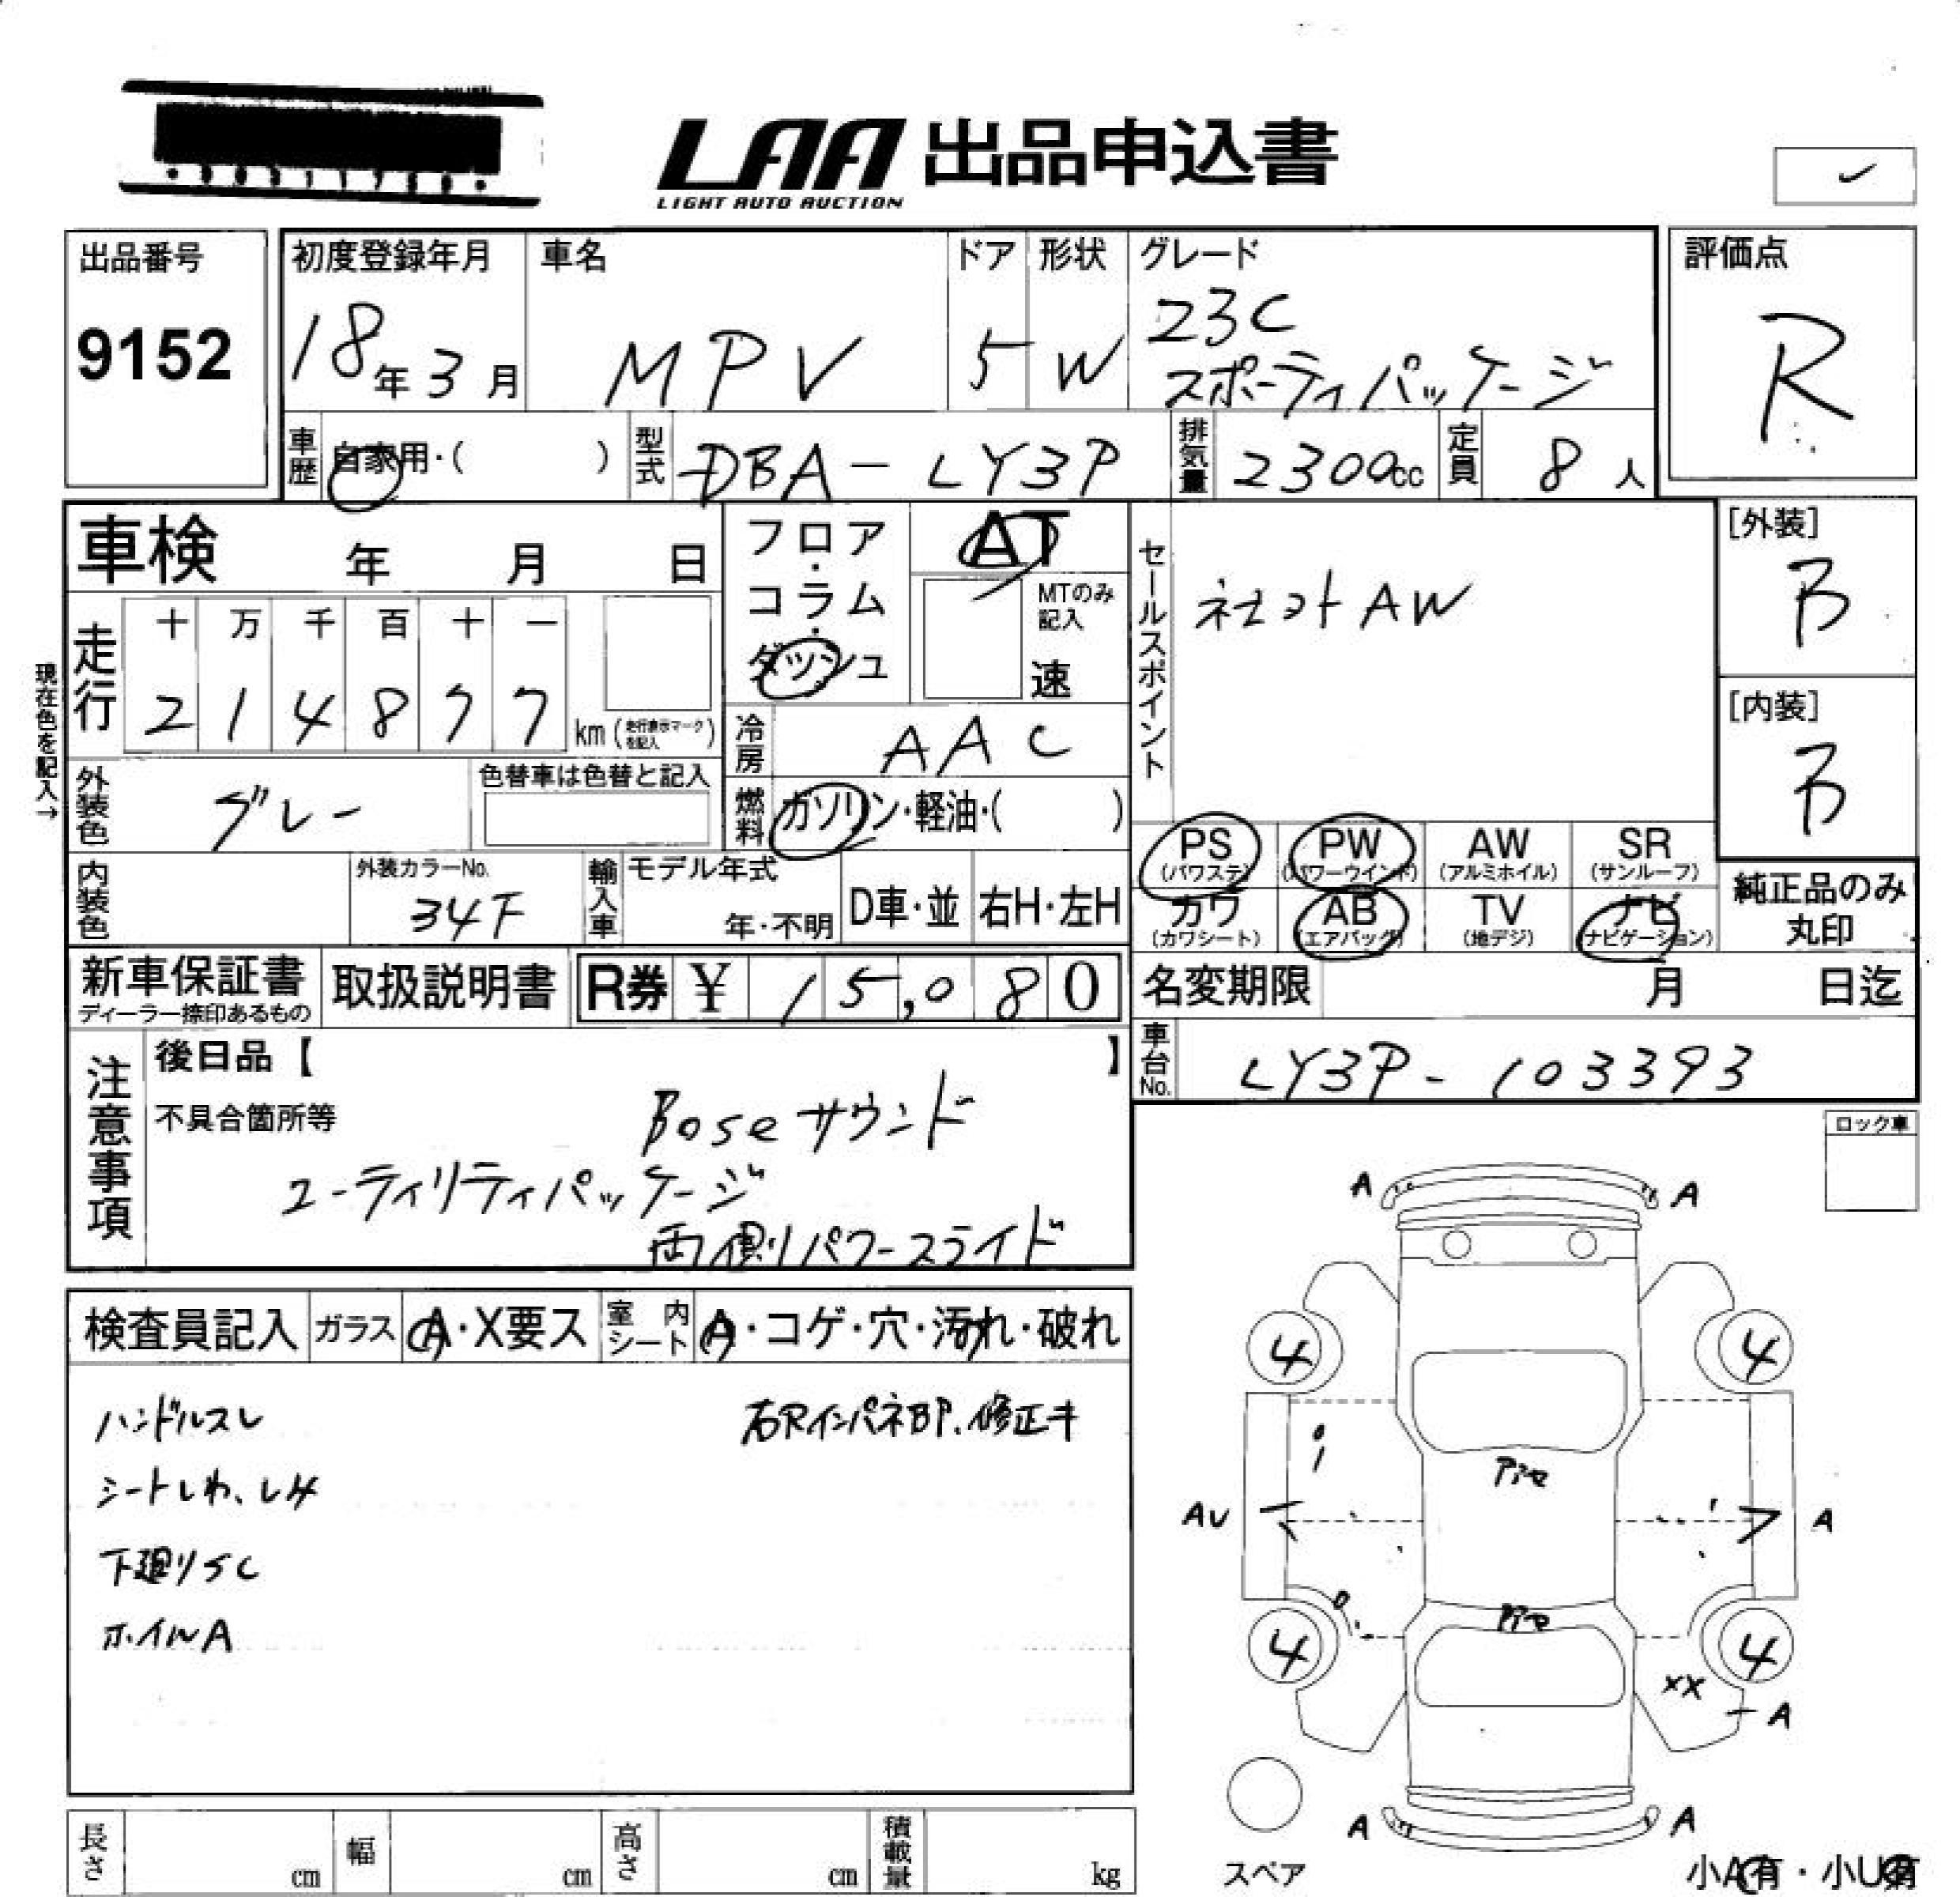 LAA 出品申込書
LIGHT AUTO AUCTION
出品番号
9152
初度登録年月
18年3月
車名
MPV
ドア
5
形状
W
グレード
23C
スポーティパッケージ
評価点
R
車歴
自家用・( )
型式
DBA-LY3P
排気量
2300cc
定員
8人
車検 年 月 日
フロア・コラム・ダッシュ
AT
MTのみ記入
速
セールスポイント
社外AW
[外装]
B
[内装]
B
現在色を記入→
走行
十 万 千 百 十 一
2 1 4 8 7 7 km (走行表示マークを記入)
冷房
AAC
外装色
グレー
色替車は色替と記入
燃料
ガソリン・軽油・( )
PS (パワステ)
PW (パワーウインド)
AW (アルミホイル)
SR (サンルーフ)
カワ (カワシート)
AB (エアバッグ)
TV (地デジ)
ナビ (ナビゲーション)
純正品のみ丸印
内装色
外装カラーNo.
34F
輸入車
モデル年式
年・不明
D車・並
右H・左H
新車保証書
ディーラー捺印あるもの
取扱説明書
R券 ¥ 15,080
名変期限 月 日迄
車台No.
LY3P-103393
注意事項
後日品【 】
不具合箇所等
Boseサウンド
ユーティリティパッケージ
両側パワースライド
ロック車
検査員記入
ガラス
A・X要ス
室内シート
A・コゲ・穴・汚れ・破れ
ハンドルスレ
右RインパネBP、修正キ
シートしわ、シミ
下廻りSC
ホイルA
A A
4 4
アセ
AU A
アセ
4 4
XX
A
A A
スペア
小A有・小U有
長さ cm
幅 cm
高さ cm
積載量 kg